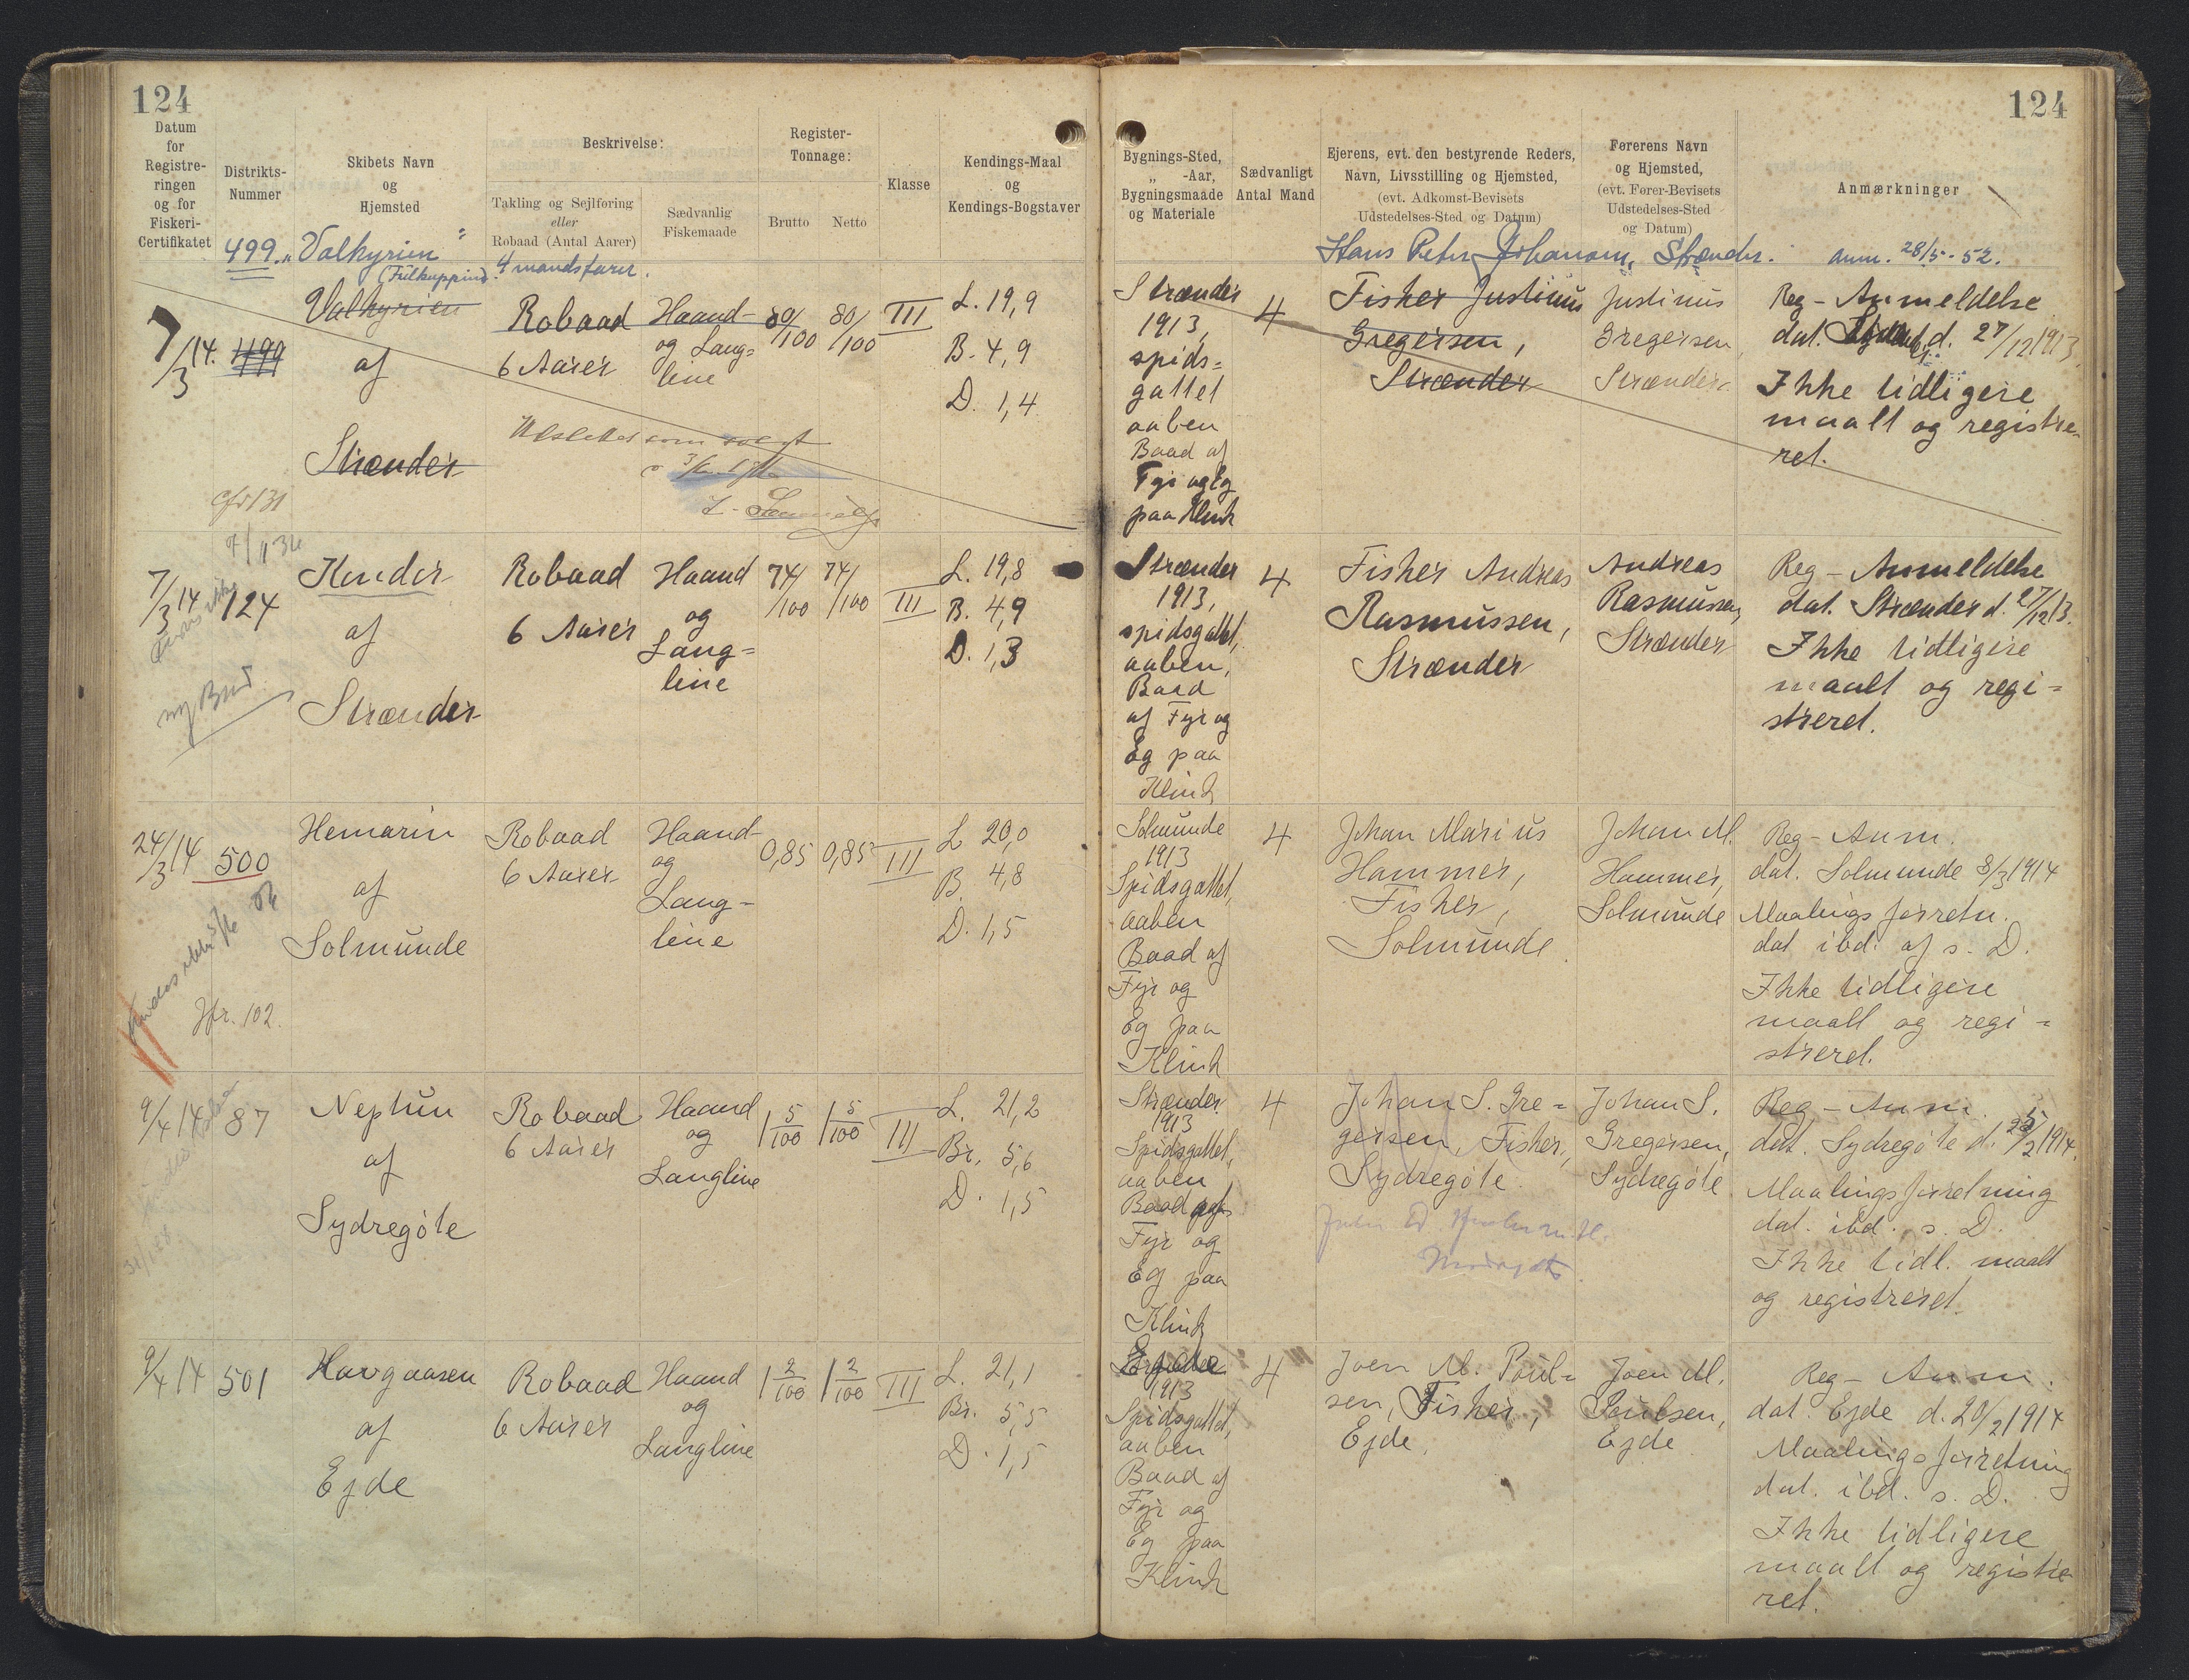 124
124
Datum
for
Registre-
ringen
og for
Fiskeri-
Certifikatet
Distrikts-
Nummer
Skibets Navn
og
Hjemsted
Beskrivelse:
Takling og Sejlføring
eller
Robaad (Antal Aarer)
Sædvanlig
Fiskemaade
Register-
Tonnage:
Brutto
Netto
Klasse
Kendings-Maal
og
Kendings-Bogstaver
Bygnings-Sted,
„ -Aar,
Bygningsmaade
og Materiale
Sædvanligt
Antal Mand
Ejerens, evt. den bestyrende Reders,
Navn, Livsstilling og Hjemsted,
(evt. Adkomst-Bevisets
Udstedelses-Sted og Datum)
Førerens Navn
og Hjemsted,
(evt. Fører-Bevisets
Udstedelses-Sted
og Datum)
Anmærkninger
499. „Valkyrien"
4mandsfarer.
Hans Peter Johansen, Strænder.
anm. 28/5-52.
7/3 14.
499
Valkyrien
af
Strænder
Robaad
6 Aarer
Haand-
og Lang=
line
80/100
80/100
III
L. 19,9
B. 4,9
D. 1,4
Strænder
1913,
spids=
gattet
aaben
Baad af
Fyr og Eg
paa Klink
4
Fisker Justinus
Gregersen,
Strænder
Justinus
Gregersen,
Strænder
Reg-Anmeldelse
dat. d. 27/12 1913.
Ikke tidligere
maalt og registre-
ret.
cfr 131
7/3 14
124
ny Baad
Kender
af
Strænder
Robaad
6 Aarer
Haand
og
Lang=
line
74/100
74/100
III
L. 19,8
B. 4,9
D. 1,3
Strænder
1913,
spidsgattet,
aaben,
Baad
af Fyr og
Eg paa
Klink
4
Fisker Andreas
Rasmussen,
Strænder
Andreas
Rasmussen,
Strænder
Reg-Anmeldelse
dat. Strænder d. 27/12 13.
Ikke tidligere
maalt og regi=
streret.
24/3 14
500
Jfr. 102.
Hemarin
af
Solmunde
Robaad
6 Aarer
Haand-
og
Lang-
line
0,85
0,85
III
L 20,0
B. 4,8
D. 1,5
Solmunde
1913
Spidsgattet,
aaben
Baad af
Fyr og
Eg paa
Klink
4
Johan Marius
Hammer,
Fisker,
Solmunde.
Johan M.
Hammer,
Solmunde
Reg-Anm.
dat. Solmunde 8/3 1914
Maalings forretn.
dat ibd. af s. D.
Ikke tidligere
maalt og regi=
streret.
9/4 14
87
Neptun
af
Sydregöte
Robaad
6 Aarer
Haand
og
Langline
1 5/100
1 5/100
III
L. 21,2
Br. 5,6
D. 1,5
Strænder
1913
Spidsgattet,
aaben
Baad af
Fyr og
Eg paa
Klink
4
Johan S. Gre=
gersen, Fisker,
Sydregöte.
Johan S.
Gregersen,
Sydregöte
Reg-Anm.
dat. Sydregöte d. 25/2 1914.
Maalingsforretning
dat. ibd. s. D.
Ikke tidl. maalt
og registreret.
9/4 14
501
Havgaasen
af
Ejde
Robaad
6 Aarer
Haand
og
Langline
1 2/100
1 2/100
III
L. 21,1
Br. 5,5
D. 1,5
1913
Spidsgattet,
aaben
Baad af
Fyr og
Eg paa
Klink
4
Joen M. Poul=
sen, Fisker,
Ejde.
Joen M.
Poulsen,
Ejde
Reg-Anm.
dat. Ejde d. 20/2 1914
Maalingsforretning
dat. ibd. s. D.
Ikke tidligere
maalt og registre
ret.